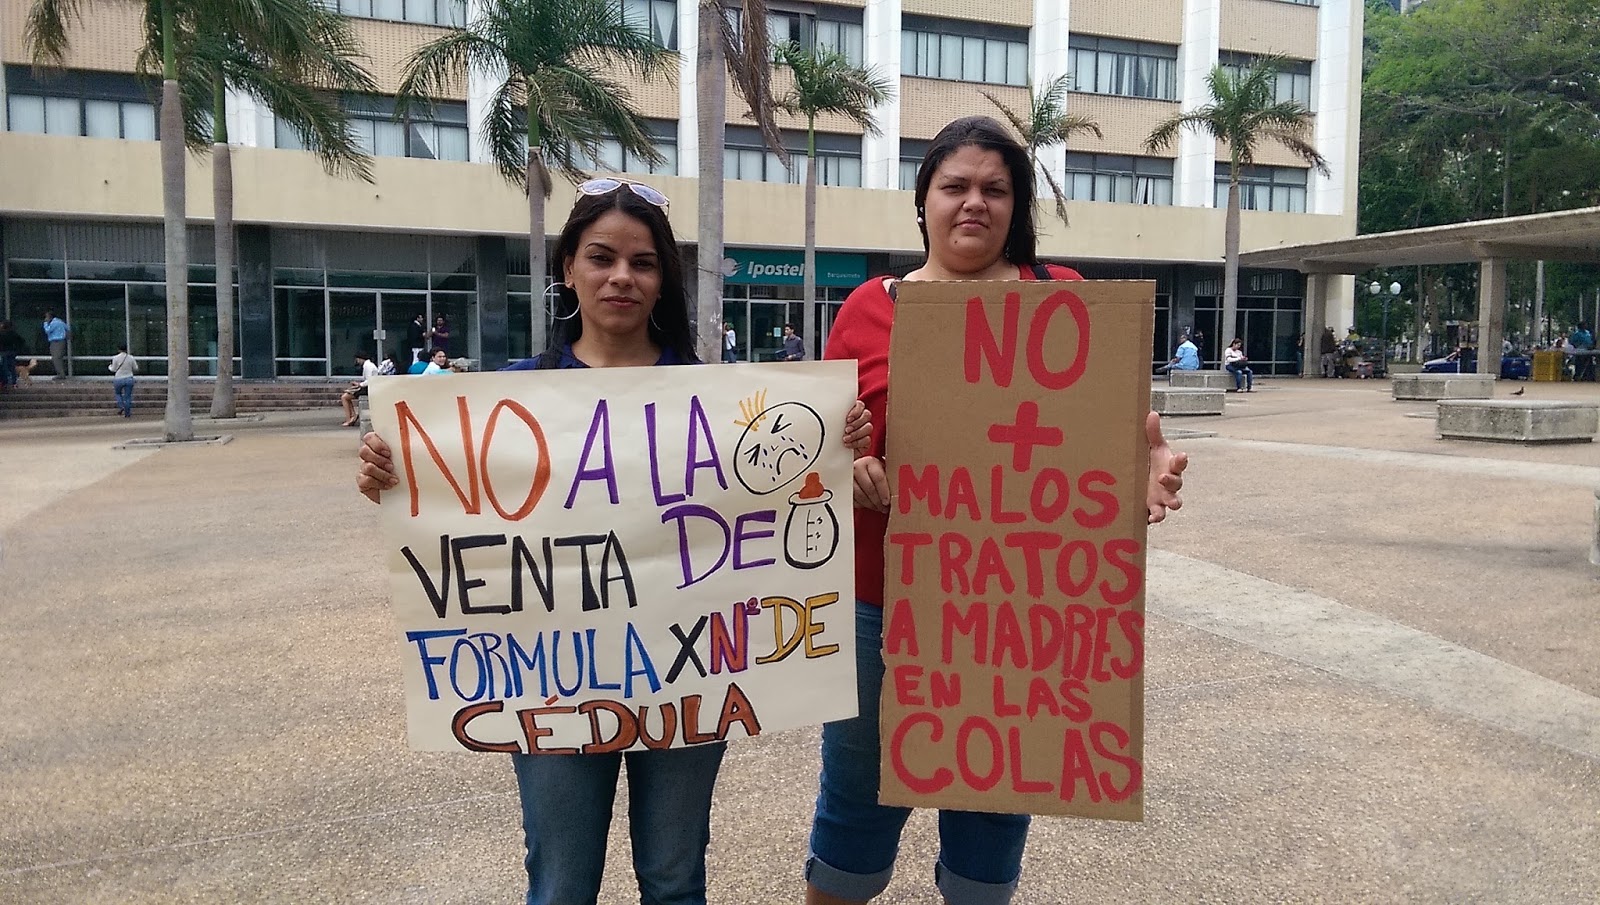 Ipostel
Barquisimeto
NO A LA
VENTA DE
FORMULA X N° DE
CÉDULA
NO
+
MALOS
TRATOS
A MADRES
EN LAS
COLAS